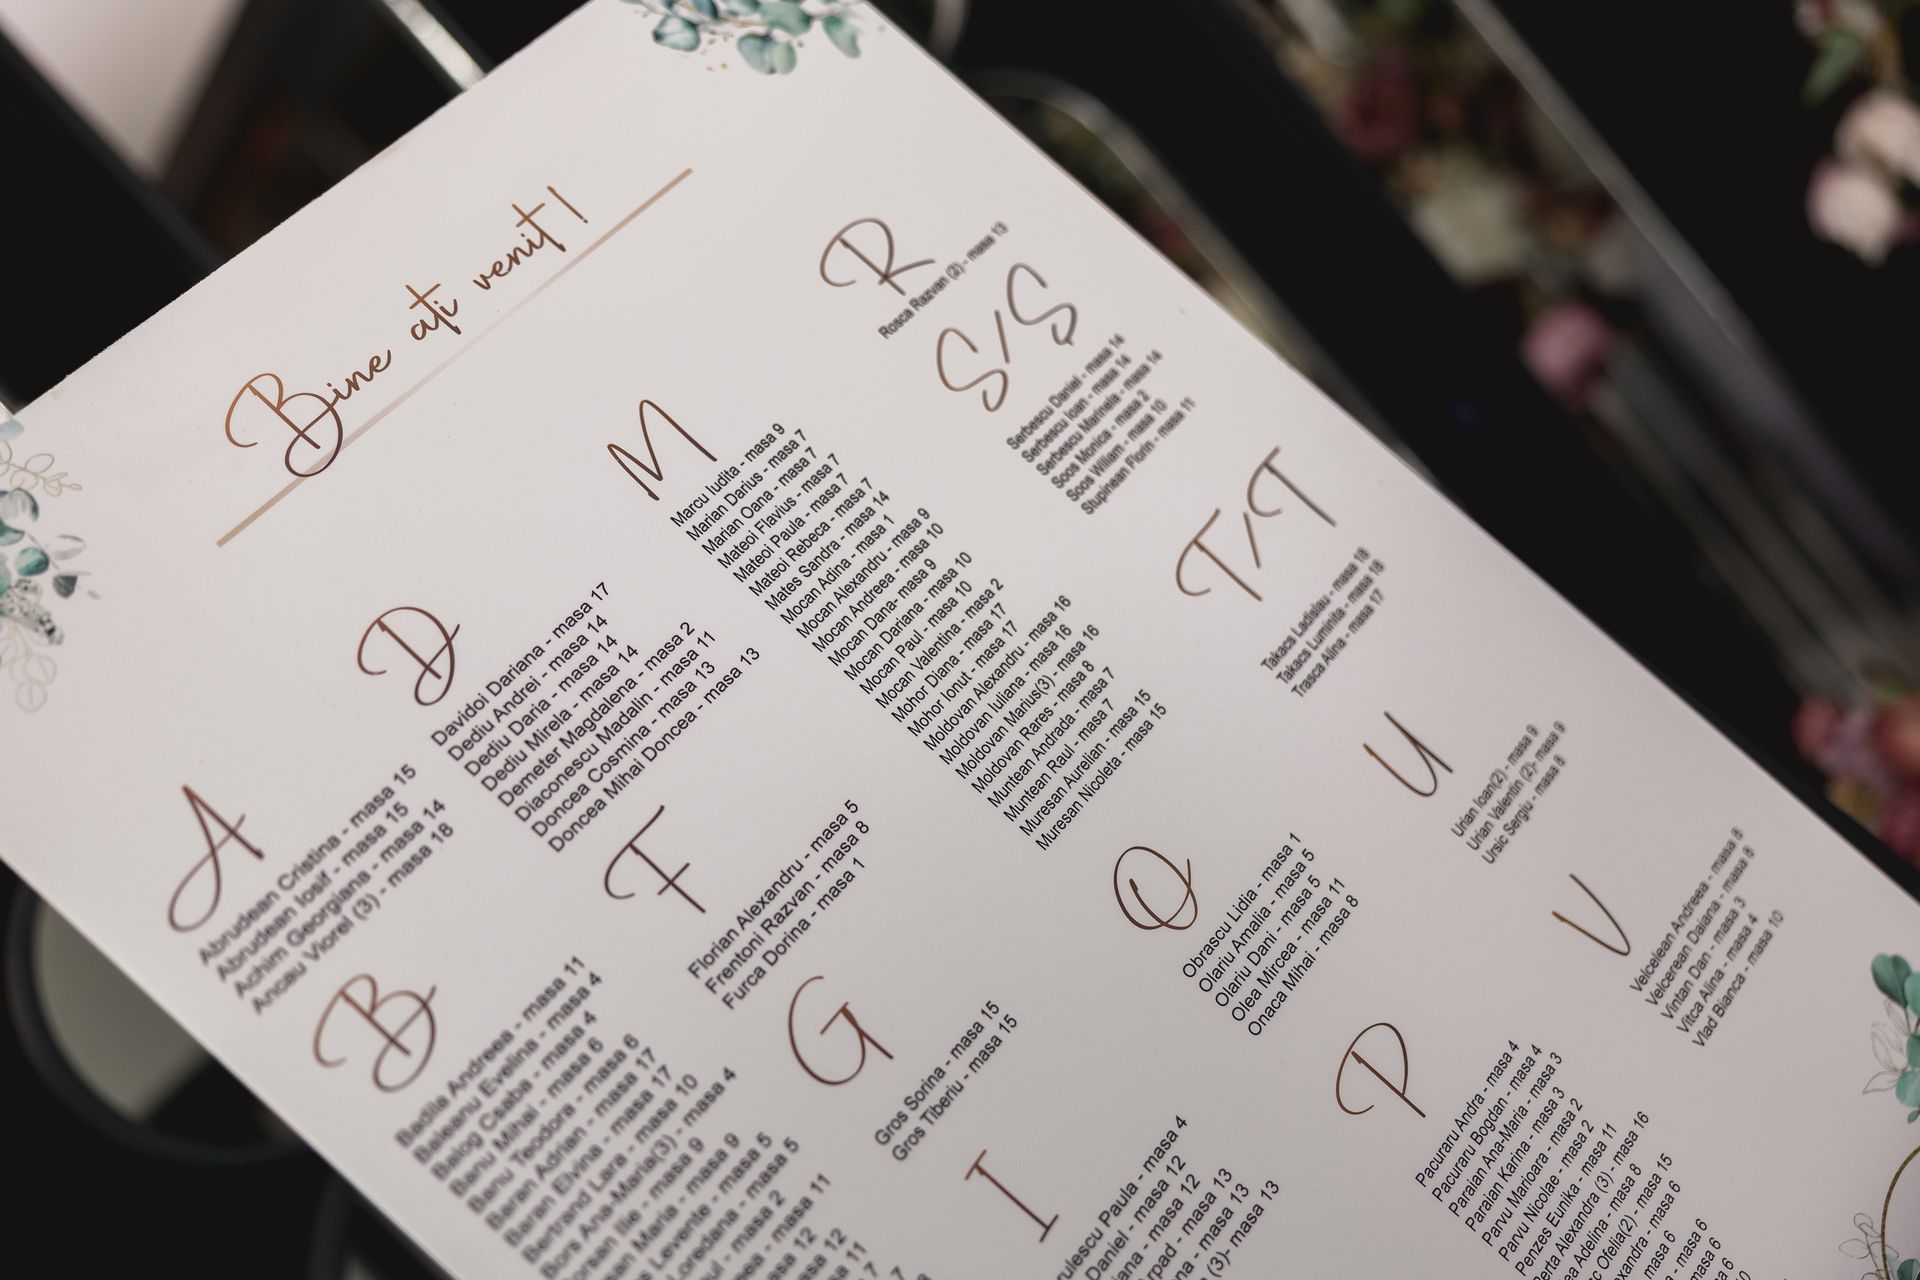 Bine ați venit!
A
Abrudean Cristina - masa 15
Abrudean Iosif - masa 15
Achim Georgiana - masa 14
Ancau Viorel (3) - masa 18
B
Badila Andreea - masa 11
Baleanu Evelina - masa 4
Balog Csaba - masa 4
Banu Mihai - masa 6
Banu Teodora - masa 6
Baran Adrian - masa 17
Baran Elvina - masa 17
Bertrand Lara - masa 10
Bors Ana-Maria(3) - masa 4
Ilie - masa 9
Maria - masa 9
Levente - masa 5
Loredana - masa 5
- masa 2
- masa 11
masa 12
masa 12
D
Davidoi Dariana - masa 17
Dediu Andrei - masa 14
Dediu Daria - masa 14
Dediu Mirela - masa 14
Demeter Magdalena - masa 2
Diaconescu Madalin - masa 11
Doncea Cosmina - masa 13
Doncea Mihai Doncea - masa 13
F
Florian Alexandru - masa 5
Frentoni Razvan - masa 8
Furca Dorina - masa 1
G
Gros Sorina - masa 15
Gros Tiberiu - masa 15
I
Paula - masa 4
Daniel - masa 12
- masa 12
- masa 13
- masa 13
(3)- masa 13
M
Marcu Iudita - masa 9
Marian Darius - masa 7
Marian Oana - masa 7
Mateoi Flavius - masa 7
Mateoi Paula - masa 7
Mateoi Rebeca - masa 7
Mates Sandra - masa 14
Mocan Adina - masa 1
Mocan Alexandru - masa 9
Mocan Andreea - masa 10
Mocan Dana- masa 9
Mocan Dariana - masa 10
Mocan Paul - masa 10
Mocan Valentina - masa 2
Mohor Diana - masa 17
Mohor Ionut - masa 17
Moldovan Alexandru - masa 16
Moldovan Iuliana - masa 16
Moldovan Marius(3) - masa 16
Moldovan Rares - masa 8
Muntean Andrada - masa 7
Muntean Raul - masa 7
Muresan Aurelian - masa 15
Muresan Nicoleta - masa 15
O
Obrascu Lidia - masa 1
Olariu Amalia - masa 5
Olariu Dani - masa 5
Olea Mircea - masa 11
Onaca Mihai - masa 8
P
Pacuraru Andra - masa 4
Pacuraru Bogdan - masa 4
Paraian Ana-Maria - masa 3
Paraian Karina - masa 3
Parvu Marioara - masa 2
Parvu Nicolae - masa 2
Penzes Eunika - masa 11
Alexandra (3) - masa 16
Adelina - masa 8
Ofelia(2) - masa 15
- masa 6
masa 6
- masa 6
masa 6
R
Rosca Razvan (2) - masa 13
S/Ș
Serbescu Daniel - masa 14
Serbescu Ioan - masa 14
Serbescu Marinela - masa 14
Soos Monica - masa 2
Soos Wiliam - masa 10
Stupinean Florin - masa 11
T/Ț
Takacs Ladislau - masa 18
Takacs Luminita - masa 18
Trasca Alina - masa 17
U
Urian Ioan(2) - masa 9
Urian Valentin (2)- masa 9
Ursic Sergiu - masa 8
V
Velcelean Andreea - masa 8
Velcerean Daiana - masa 8
Vintan Dan - masa 3
Vitca Alina - masa 4
Vlad Bianca - masa 10